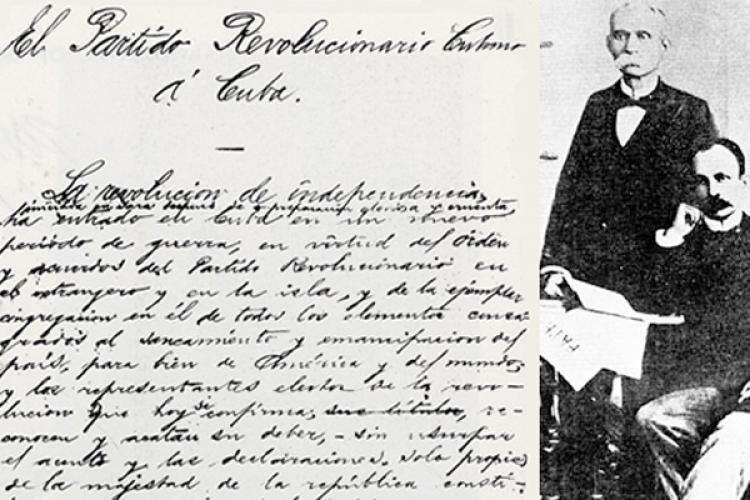 El Partido Revolucionario Cubano
á Cuba.
La revolucion de independencia,
iniciada en Yara despues de preparacion gloriosa y cruenta,
ha entrado en Cuba en un nuevo
periodo de guerra, en virtud del órden
y acuerdos del Partido Revolucionario en
el extrangero y en la isla, y de la ejemplar
congregacion en él de todos los elementos consa-
grados al saneamiento y emancipacion del
país, para bien de América y del mundo;
y los representantes electos de la revo-
lucion que hoy se confirma, re-
conocen y acatan su deber, - sin usurpar
el acento y las declaraciones solo propias
de la majestad de la república consti-